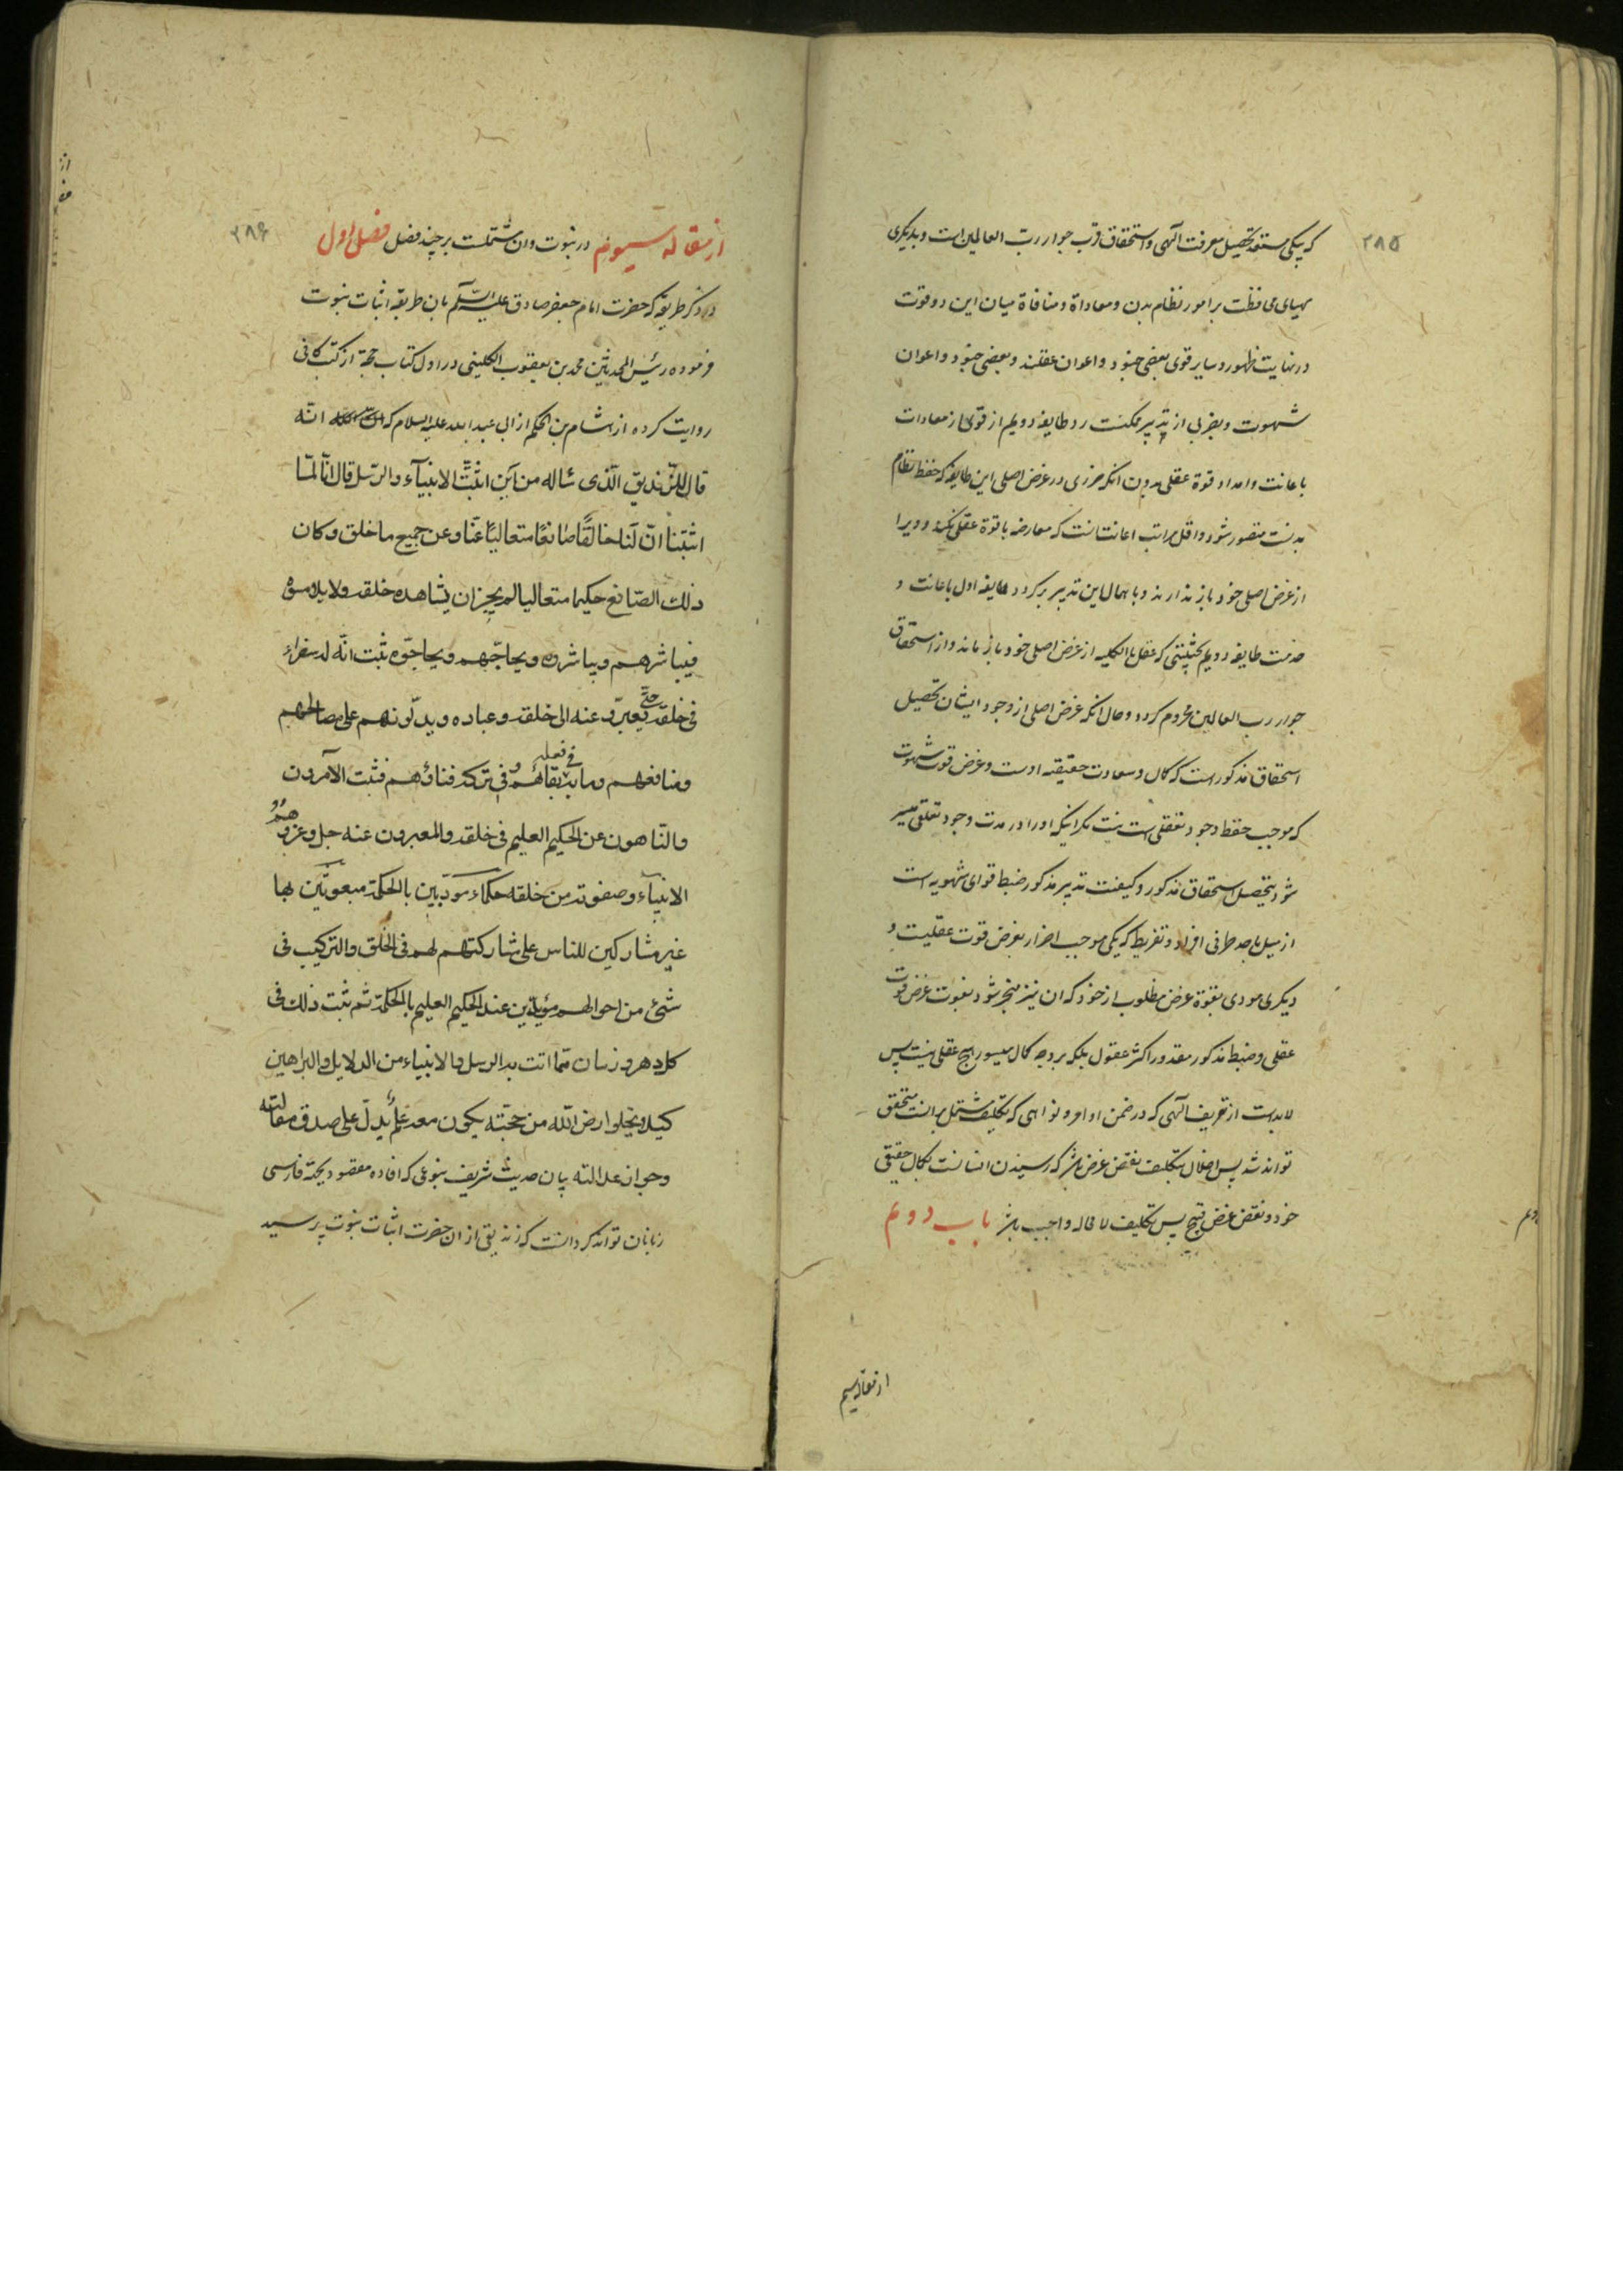 ۲۸۵
که بیکی مستعد تحصیل معرفت الهی و استحقاق قرب جوار رب العالمین است و بدیگری
مهیای محافظت بر امور نظام بدن و معاداة و منافاة میان این دو قوت
در نهایت ظهور و سایر قوی بعضی جنود و اعوان عقلند و بعضی جنود و اعوان
شهوت و بضربی از تدبیر ممکنست رد طایفه دویم از قوی از معادات
باعانت و امداد قوة عقلی بدون انکه ضرری در غرض اصلی این طایفه که حفظ نظام
بدنست متصور شود و اقل مراتب اعانت انست که معارضه با قوة عقلی نکند و ویرا
از غرض اصلی خود باز ندارند و باهمال این تدبیر برگردد طایفه اول باعانت و
خدمت طایفه دویم بحیثیتی که عقل بالکلیه از غرض اصلی خود باز ماند و از استحقاق
جوار رب العالمین محروم کردد و حال انکه غرض اصلی از وجود ایشان تحصیل
استحقاق مذکور است که کمال و سعادت حقیقیه اوست و غرض قوت شهوت
که موجب حفظ وجود تعلقی است نیست مکر اینکه او را در مدت وجود تعلقی میسر
شود تحصیل استحقاق مذکور و کیفیت تدبیر مذکور ضبط قوای شهویه است
از میل باحد طرفی افراط و تفریط که یکی موجب اضرار بغرض قوت عقلیت و
دیکری مودی بفوة غرض مطلوب از خود که ان نیز منجر شود بفوت غرض قوت
عقلی و ضبط مذکور مقدور اکثر عقول بلکه بر وجه کمال میسور هیچ عقلی نیست پس
لابدست از تعریف الهی که در ضمن اوامر و نواهی که تکلیف مشتمل برانست متحقق
تواند شد پس اخلال بتکلیف نقض غرض باشد که رسیدن انسانست بکمال حقیقی
خود و نقض غرض قبیح پس تکلیف لامحاله واجب باشد باب دویم
از مقاله سیم
۲۸۶
از مقاله سیوم در نبوت و ان مشتملست بر چند فصل فصل اول
در ذکر طریقه که حضرت امام جعفر صادق علیه السلام بان طریقه اثبات نبوت
فرموده رئیس المحدثین محمد بن یعقوب الکلینی در اول کتاب حجة از کتب کافی
روایت کرده از هشام بن الحکم از ابی عبد الله علیه السلام که انّه
قال للزندیق الّذی سأله من این اثبتّ الانبیآء والرسل قال انّا لمّا
اثبتنا انّ لنا خالقًا صانعًا متعالیًا عنّا وعن جمیع ما خلق وکان
ذلك الصّانع حکیما متعالیا لم یجز ان یشاهده خلقه ولا یلامسوه
فیباشرهم ویباشروه ویحاجّهم ویحاجّوه ثبت انّه له سفراء
فی خلقه یعبّرون عنه الی خلقه وعباده ویدلّونهم علی مصالحهم
ومنافعهم وما به بقاؤهم وفی ترکه فناؤهم فثبت الآمرون
والنّاهون عن الحکیم العلیم فی خلقه والمعبرون عنه جل وعز وهم
الانبیآء وصفوته من خلقه حکماء مؤدّبین بالحکمة مبعوثین بها
غیر مشارکین للناس علی مشارکتهم لهم فی الخلق والترکیب فی
شئ من احوالهم مؤیّدین عند الحکیم العلیم بالحکمة ثم ثبت ذلك فی
کل دهر وزمان ممّا اتت به الرسل والانبیاء من الدلایل والبراهین
کیلا یخلوا ارض الله من حجّته یکون معه علم یدلّ علی صدق مقالته
وجواز عدالته بیان حدیث شریف بنوعی که افاده مقصود بجهة فارسی
زبانان تواند کرد انست که زندیقی از ان حضرت اثبات نبوت پرسید